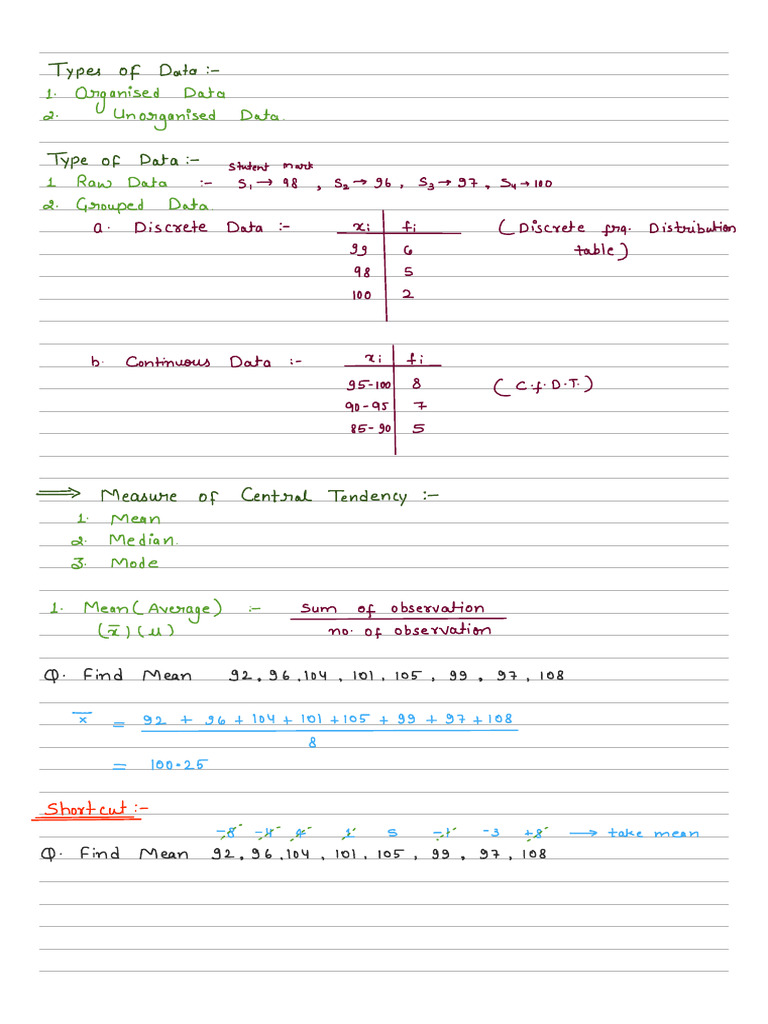 Types of Data :-
1. Organised Data
2. Unorganised Data.
Type of Data :-
Student mark
1 Raw Data :- S₁→ 98 , S₂→ 96 , S₃→ 97 , S₄→ 100
2. Grouped Data.
a. Discrete Data :- xi fi (Discrete frq. Distribution
99 6 table)
98 5
100 2
b. Continuous Data :- xi fi
95-100 8 (C.f.D.T.)
90-95 7
85-90 5
⟹ Measure of Central Tendency :-
1. Mean
2. Median.
3. Mode
1. Mean (Average) :- Sum of observation
(x̄) (μ) no. of observation
Q. Find Mean 92, 96, 104, 101, 105, 99, 97, 108
x̄ = 92 + 96 + 104 + 101 + 105 + 99 + 97 + 108
8
= 100.25
Shortcut :-
-8 -4 4 1 5 -1 -3 +8 → take mean
Q. Find Mean 92, 96, 104, 101, 105, 99, 97, 108